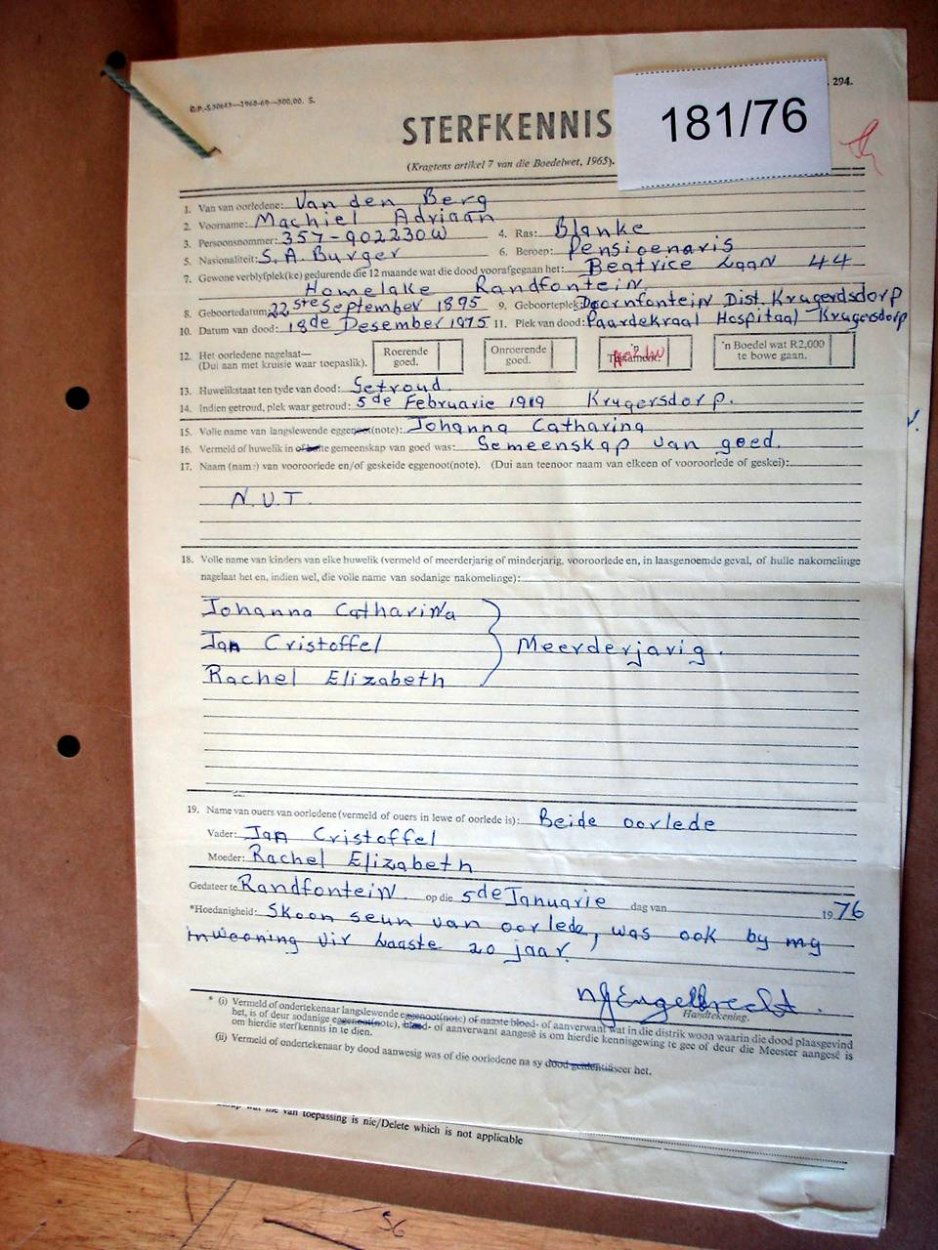 G.P.-S.50647—1968-69—500,00. S.
294.
181/76
STERFKENNIS
(Kragtens artikel 7 van die Boedelwet, 1965).
1. Van van oorledene: Van den Berg
2. Voorname: Machiel Adriaan
3. Persoonsnommer: 357-902230W 4. Ras: Blanke
5. Nasionaliteit: S.A. Burger 6. Beroep: Pensioenaris
7. Gewone verblyfplek(ke) gedurende die 12 maande wat die dood voorafgegaan het: Beatrice Laan 44
Homelake Randfontein
8. Geboortedatum: 22ste September 1895 9. Geboorteplek: Doornfontein Dist. Krugerdsdorp
10. Datum van dood: 18de Desember 1975 11. Plek van dood: Paardekraal Hospitaal Krugersdorp
12. Het oorledene nagelaat— Roerende Onroerende 'n 'n Boedel wat R2,000
(Dui aan met kruisie waar toepaslik). goed. goed. Testament. te bowe gaan.
13. Huwelikstaat ten tyde van dood: Getroud.
14. Indien getroud, plek waar getroud: 5de Februarie 1919 Krugersdorp.
15. Volle name van langslewende eggenoot(note): Johanna Catharina
16. Vermeld of huwelik in of buite gemeenskap van goed was: Gemeenskap van goed.
17. Naam (name) van vooroorlede en/of geskeide eggenoot(note). (Dui aan teenoor naam van elkeen of vooroorlede of geskei):
N.V.T.
18. Volle name van kinders van elke huwelik (vermeld of meerderjarig of minderjarig, vooroorlede en, in laasgenoemde geval, of hulle nakomelinge
nagelaat het en, indien wel, die volle name van sodanige nakomelinge):
Johanna Catharina
Jan Cristoffel Meerderjarig.
Rachel Elizabeth
19. Name van ouers van oorledene (vermeld of ouers in lewe of oorlede is): Beide oorlede
Vader: Jan Cristoffel
Moeder: Rachel Elizabeth
Gedateer te Randfontein. op die 5de Januarie dag van 1976
*Hoedanigheid: Skoon seun van oorlede, was ook by my
inwooning vir laaste 20 jaar.
NJ Engelbrecht.
Handtekening.
* (i) Vermeld of ondertekenaar langslewende eggenoot(note) of naaste bloed- of aanverwant wat in die distrik woon waarin die dood plaasgevind
het, is of deur sodanige eggenoot(note), bloed- of aanverwant aangesê is om hierdie kennisgewing te gee of deur die Meester aangesê is
om hierdie sterfkennis in te dien.
(ii) Vermeld of ondertekenaar by dood aanwesig was of die oorledene na sy dood geïdentifiseer het.
van toepassing is nie/Delete which is not applicable